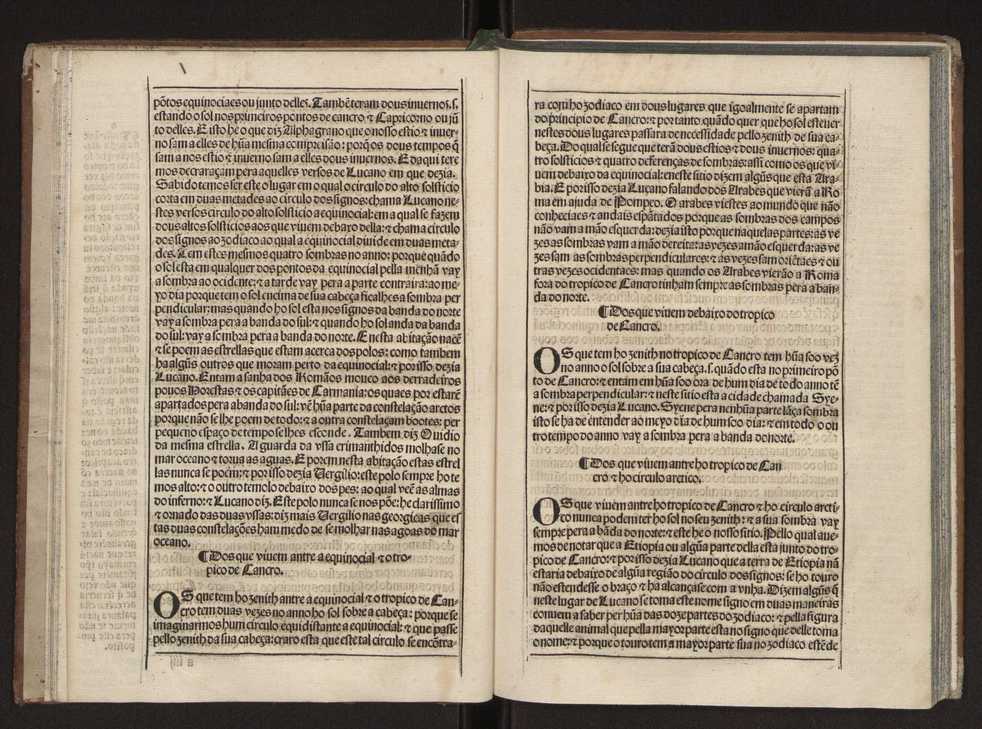 põtos equinociaes ou junto delles. Tambẽ teram dous inuernos .s.
estando o sol nos primeiros pontos de cancro ⁊ Capricorno ou jũ
to delles. E isto he o que diz Alphagrano que o nosso estio ⁊ inuer-
no sam a elles de hũa mesma compreisão: porq̃ os dous tempos q̃
sam a nos estio ⁊ inuerno sam a elles dous inuernos. E daqui tere
mos decraraçam pera aquelles versos de Lucano em que dezia.
Sabido temos ser este o lugar em o qual o circulo do alto solsticio
corta em duas metades ao circulo dos signos: chama Lucano ne-
stes versos circulo do alto solsticio a equinocial: em a qual se fazem
dous altos solsticios aos que viuem debaxo della: ⁊ chama circulo
dos signos ao zodiaco ao qual a equinocial diuide em duas meta-
des. Tem estes mesmos quatro sombras no anno: porque quãdo
o sol esta em qualquer dos pontos da equinocial pella menhã vay
a sombra ao ocidente: ⁊ a tarde vay pera a parte contraira: ao me-
yo dia porque tem o sol encima de sua cabeça ficalhes a sombra per
pendicular: mas quando ho sol esta nos signos da banda do norte
vay a sombra pera a banda do sul: ⁊ quando ho sol anda da banda
do sul: vay a sombra pera a banda do norte. E nesta abitação nacẽ
⁊ se poem as estrellas que estam acerca dos polos: como tambem
ha algũs outros que moram perto da equinocial: ⁊ por isso dezia
Lucano. Entam a sanha dos Romãos mouco aos derradeiros
pouos Horestas ⁊ os capitães de Carmania: os quaes por estarẽ
apartados pera a banda do sul: vẽ hũa parte da constelação arctos
porque não se lhe poem de todo: ⁊ a outra constelaçam bootes: per
pequeno espaço de tempo se lhes esconde. Tambem diz Ouidio
da mesma estrella. A guarda da vssa erimanthidos molhase no
mar oceano ⁊ torua as agoas. E porem nesta abitação estas estrel
las nunca se poẽm: ⁊ por isso dezia Vergilio: este polo sempre ho te
mos alto: ⁊ o outro temolo debaixo dos pes: ao qual veẽ as almas
do inferno: ⁊ Lucano diz. Este polo nunca se nos põe: he clarissimo
⁊ ornado das duas vssas: diz mais Vergilio nas georgicas que es
tas duas constelações ham medo de se molhar nas agoas do mar
oceano.
¶ Dos que viuem antre a equinocial ⁊ o tro-
pico de Cancro.
OS que tem ho zenith antre a equinocial ⁊ o tropico de Can-
cro tem duas vezes no anno ho sol sobre a cabeça: porque se
imaginarmos hum circulo equidistante a equinocial: ⁊ que passe
pello zenith da sua cabeça: craro esta que este tal circulo se encõtra-
a iiij
ra com ho zodiaco em dous lugares que igoalmente se apartam
do principio de Cancro: ⁊ por tanto quãdo quer que ho sol esteuer
nestes dous lugares passara de necessidade pello zenith de sua ca-
beça. Do qual se segue que terã dous estios ⁊ dous inuernos: qua-
tro solsticios ⁊ quatro deferenças de sombras: assi como os que vi-
uem debaixo da equinocial: e neste sitio dizem algũs que esta Ara-
bia. E por isso dezia Lucano falando dos Arabes que vierã a Ro
ma em ajuda de Pompeo. O arabes viestes ao mundo que não
conhecíaes ⁊ andais espãtados porque as sombras dos campos
não vam a mão esquerda: dezia isto porque naquelas partes: as ve
zes as sombras vam a mão dereita: as vezes a mão esquerda: as ve
zes sam as sombras perpendiculares: ⁊ as vezes sam oriẽtaes ⁊ ou
tras vezes ocidentaes: mas quando os Arabes vierão a Roma
fora do tropico de Cancro tinham sempre as sombras pera a ban-
da do norte.
¶ Dos que viuem debaixo do tropico
de Cancro.
OS que tem ho zenith no tropico de Cancro tem hũa soo vez
no anno o sol sobre a sua cabeça .s. quãdo esta no primeiro põ
to de Cancro: ⁊ entam em hũa soo ora de hum dia de todo anno tẽ
a sombra perpendicular: ⁊ neste sitio esta a cidade chamada Sye-
ne: ⁊ por isso dezia Lucano. Syene pera nenhũa parte lãça sombra
isto se ha de entender ao meyo dia de hum soo dia: ⁊ em todo o ou
tro tempo do anno vay a sombra pera a banda do norte.
¶ Dos que viuem antre ho tropico de Can
cro ⁊ ho circulo artico.
OS que viuem antre ho tropico de Cancro ⁊ ho circulo arcti
co nunca podem ter ho sol no seu zenith: ⁊ a sua sombra vay
sempre pera a bãda do norte: ⁊ este he o nosso sitio. Pello qual aue-
mos de notar que a Etiopia ou algũa parte della esta junto do tro-
pico de Cancro: ⁊ por isso dezia Lucano que a terra de Etiopia nã
estaria debaixo de algũa região do circulo dos signos: se ho touro
não estendesse o braço ⁊ ha alcançase com a vnha. Dizem algũs q̃
neste lugar de Lucano se toma este nome signo em duas maneiras
conuem a saber per hũa das doze partes do zodiaco: ⁊ pella figura
daquelle animal que pella mayor parte esta no signo que delle toma
o nome: ⁊ porque o touro tem a mayor parte sua no zodiaco estẽ de